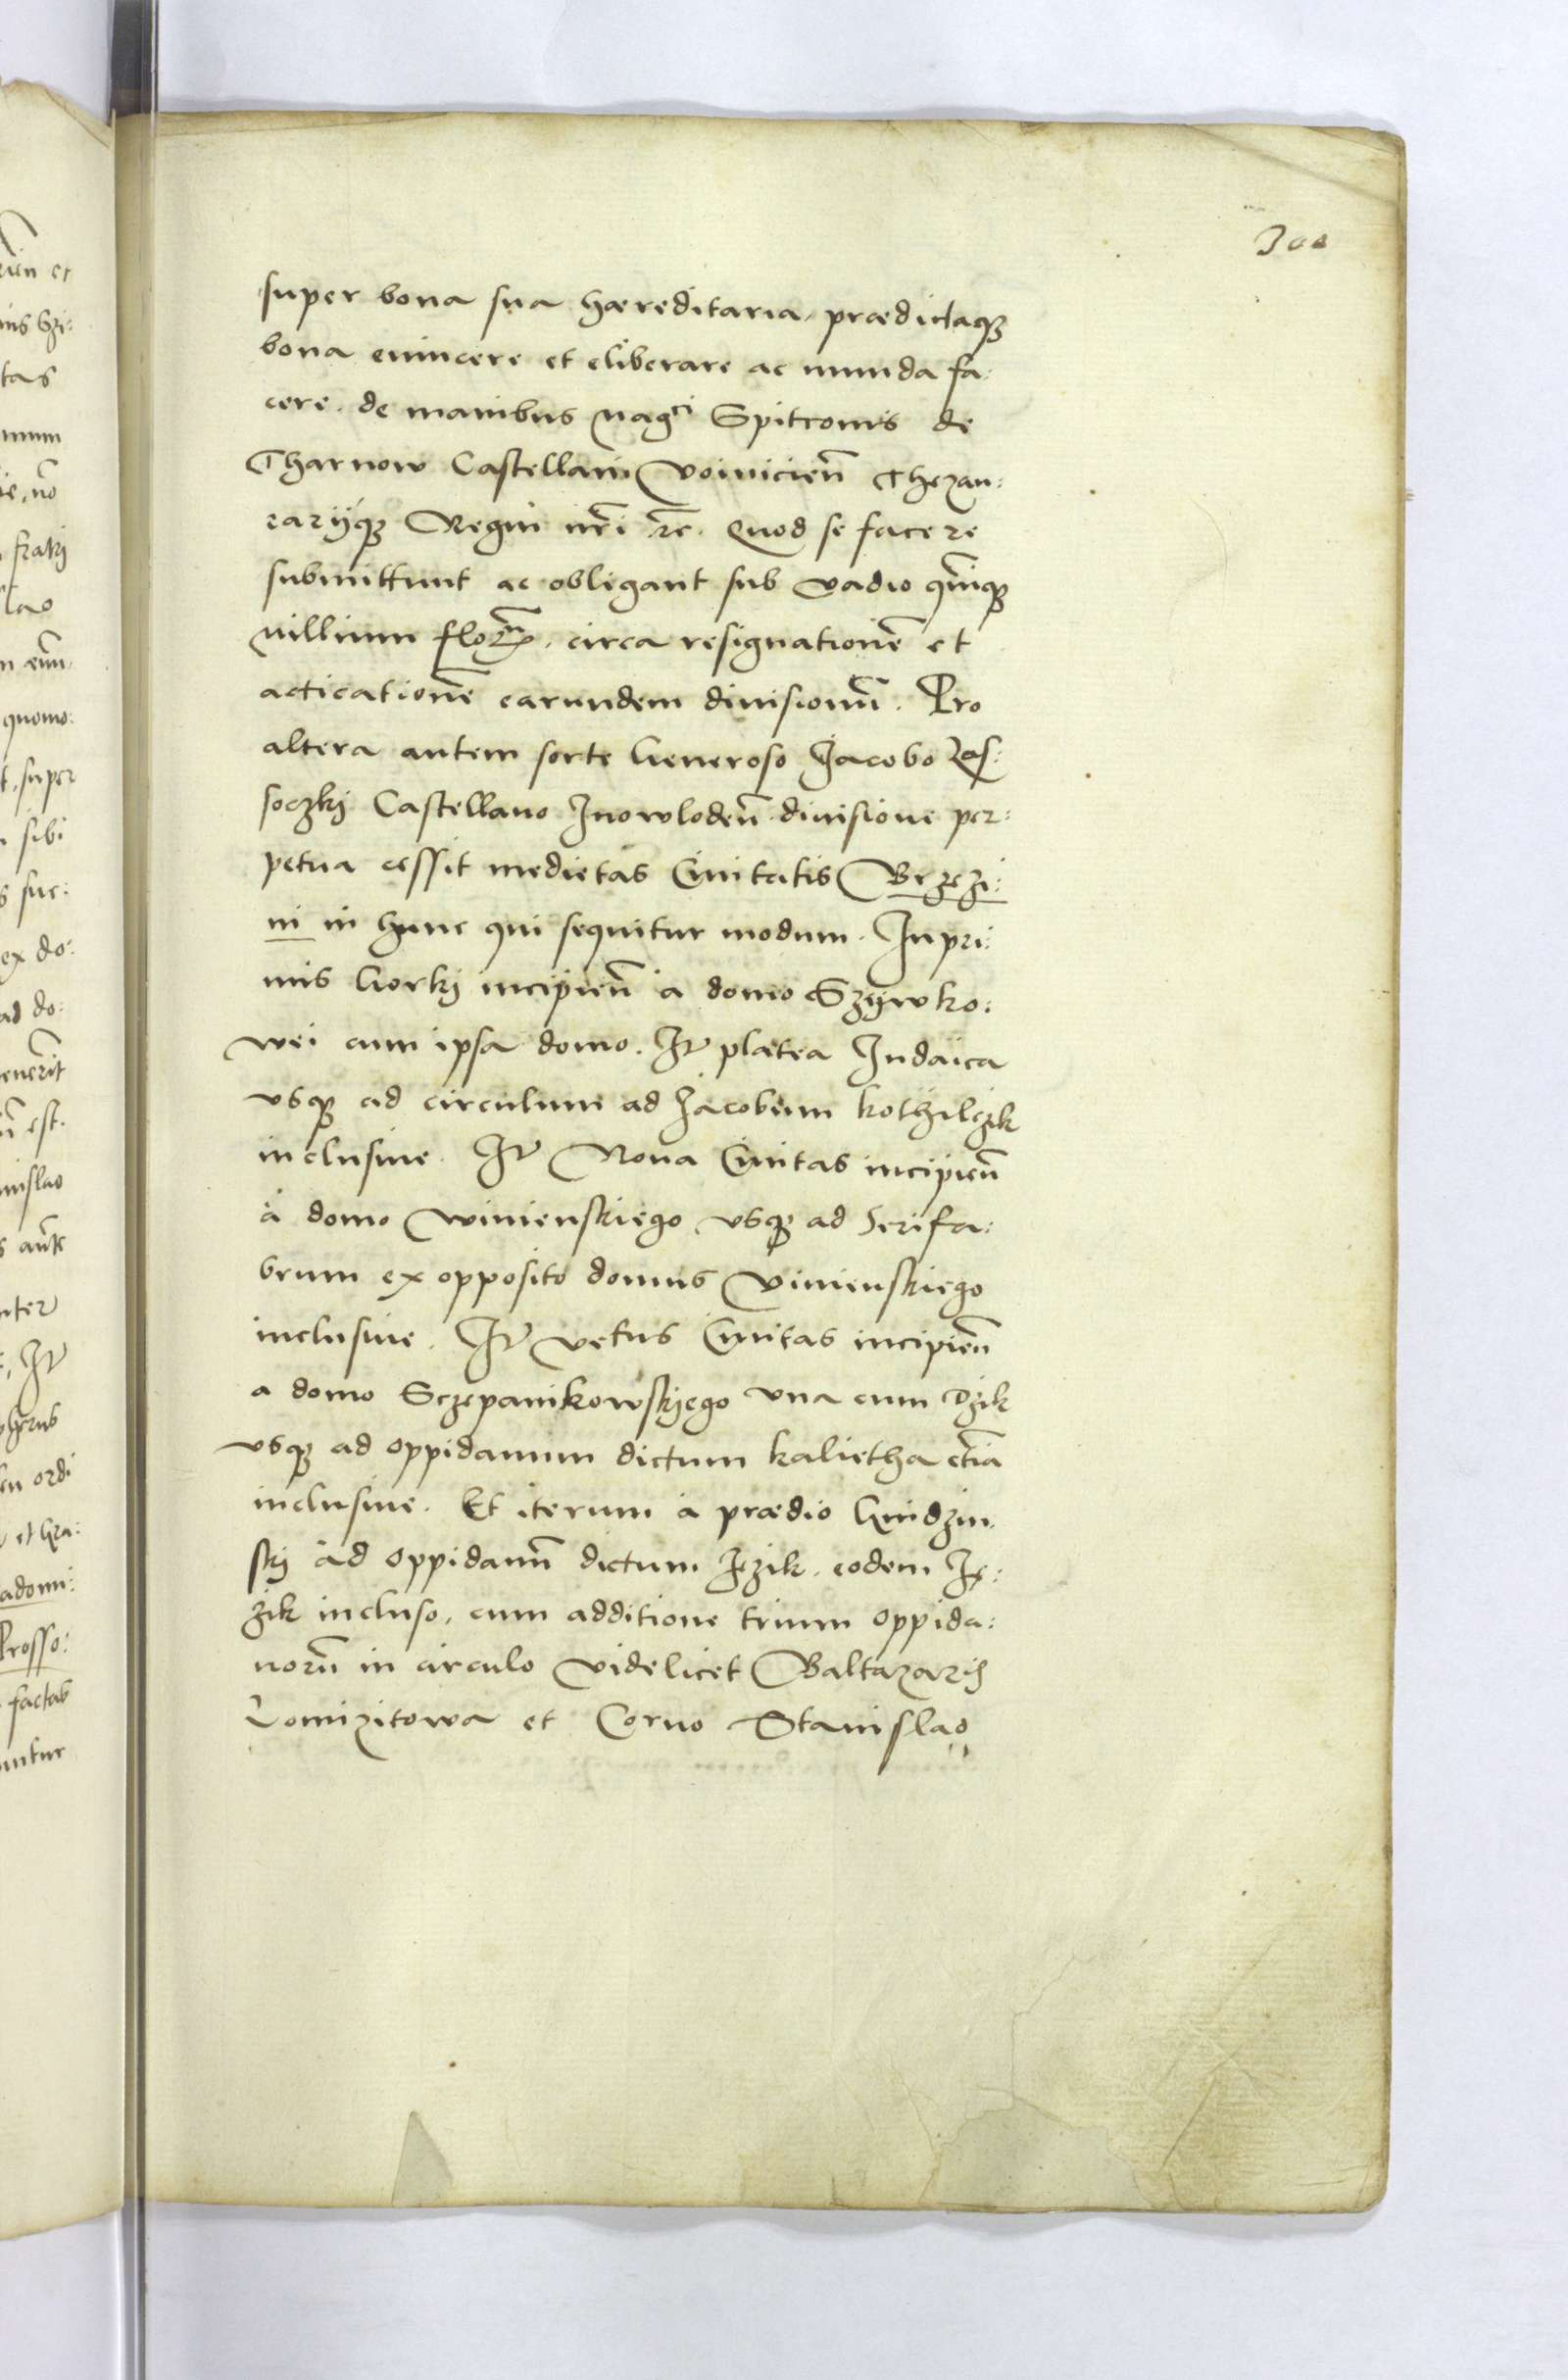 300
super bona sua hæreditaria, prædictaqꝫ
bona euincere et eliberare ac munda fa:
cere. de manibus Magᶜⁱ Spitconis de
Tharnow Castellani Voiniciẽn Thezau:
rarijqꝫ Regni nr̃i rc̃. Quod se facere
submittunt ac obligant sub vadio quinqꝫ
millium floꝝ. circa resignationẽ et
acticationẽ earundem diuisionũ. Pro
altera autem sorte Generoso Jacobo Las:
soczki Castellano Inowlodeñ diuisione per:
petua cessit medietas Ciuitatis Brzezi:
ni in hunc qui sequitur modum. Inpri:
mis Gorki incipieñ a domo Szÿwko:
wei cum ipsa domo. Itꝫ platea Iudaica
vsqꝫ ad circulum ad Jacobum kothilczik
inclusiue. Itꝫ Noua Ciuitas incipieñ
à domo Winienskiego vsqꝫ ad Serifa:
brum ex opposito domus Vinienskiego
inclusiue. Itꝫ vetus Ciuitas incipieñ
a domo Sczepanikowskiego vna cum Dzik
vsqꝫ ad oppidanum dictum kalietha etiã
inclusiue. Et iterum à prædio Gnidzin
ski ad oppidanũ dictum Jezik. eodem Je:
zik incluso, cum additione trium oppida:
norũ in circulo videlicet Baltazaris
Lomizitowa et Coruo Stanislao